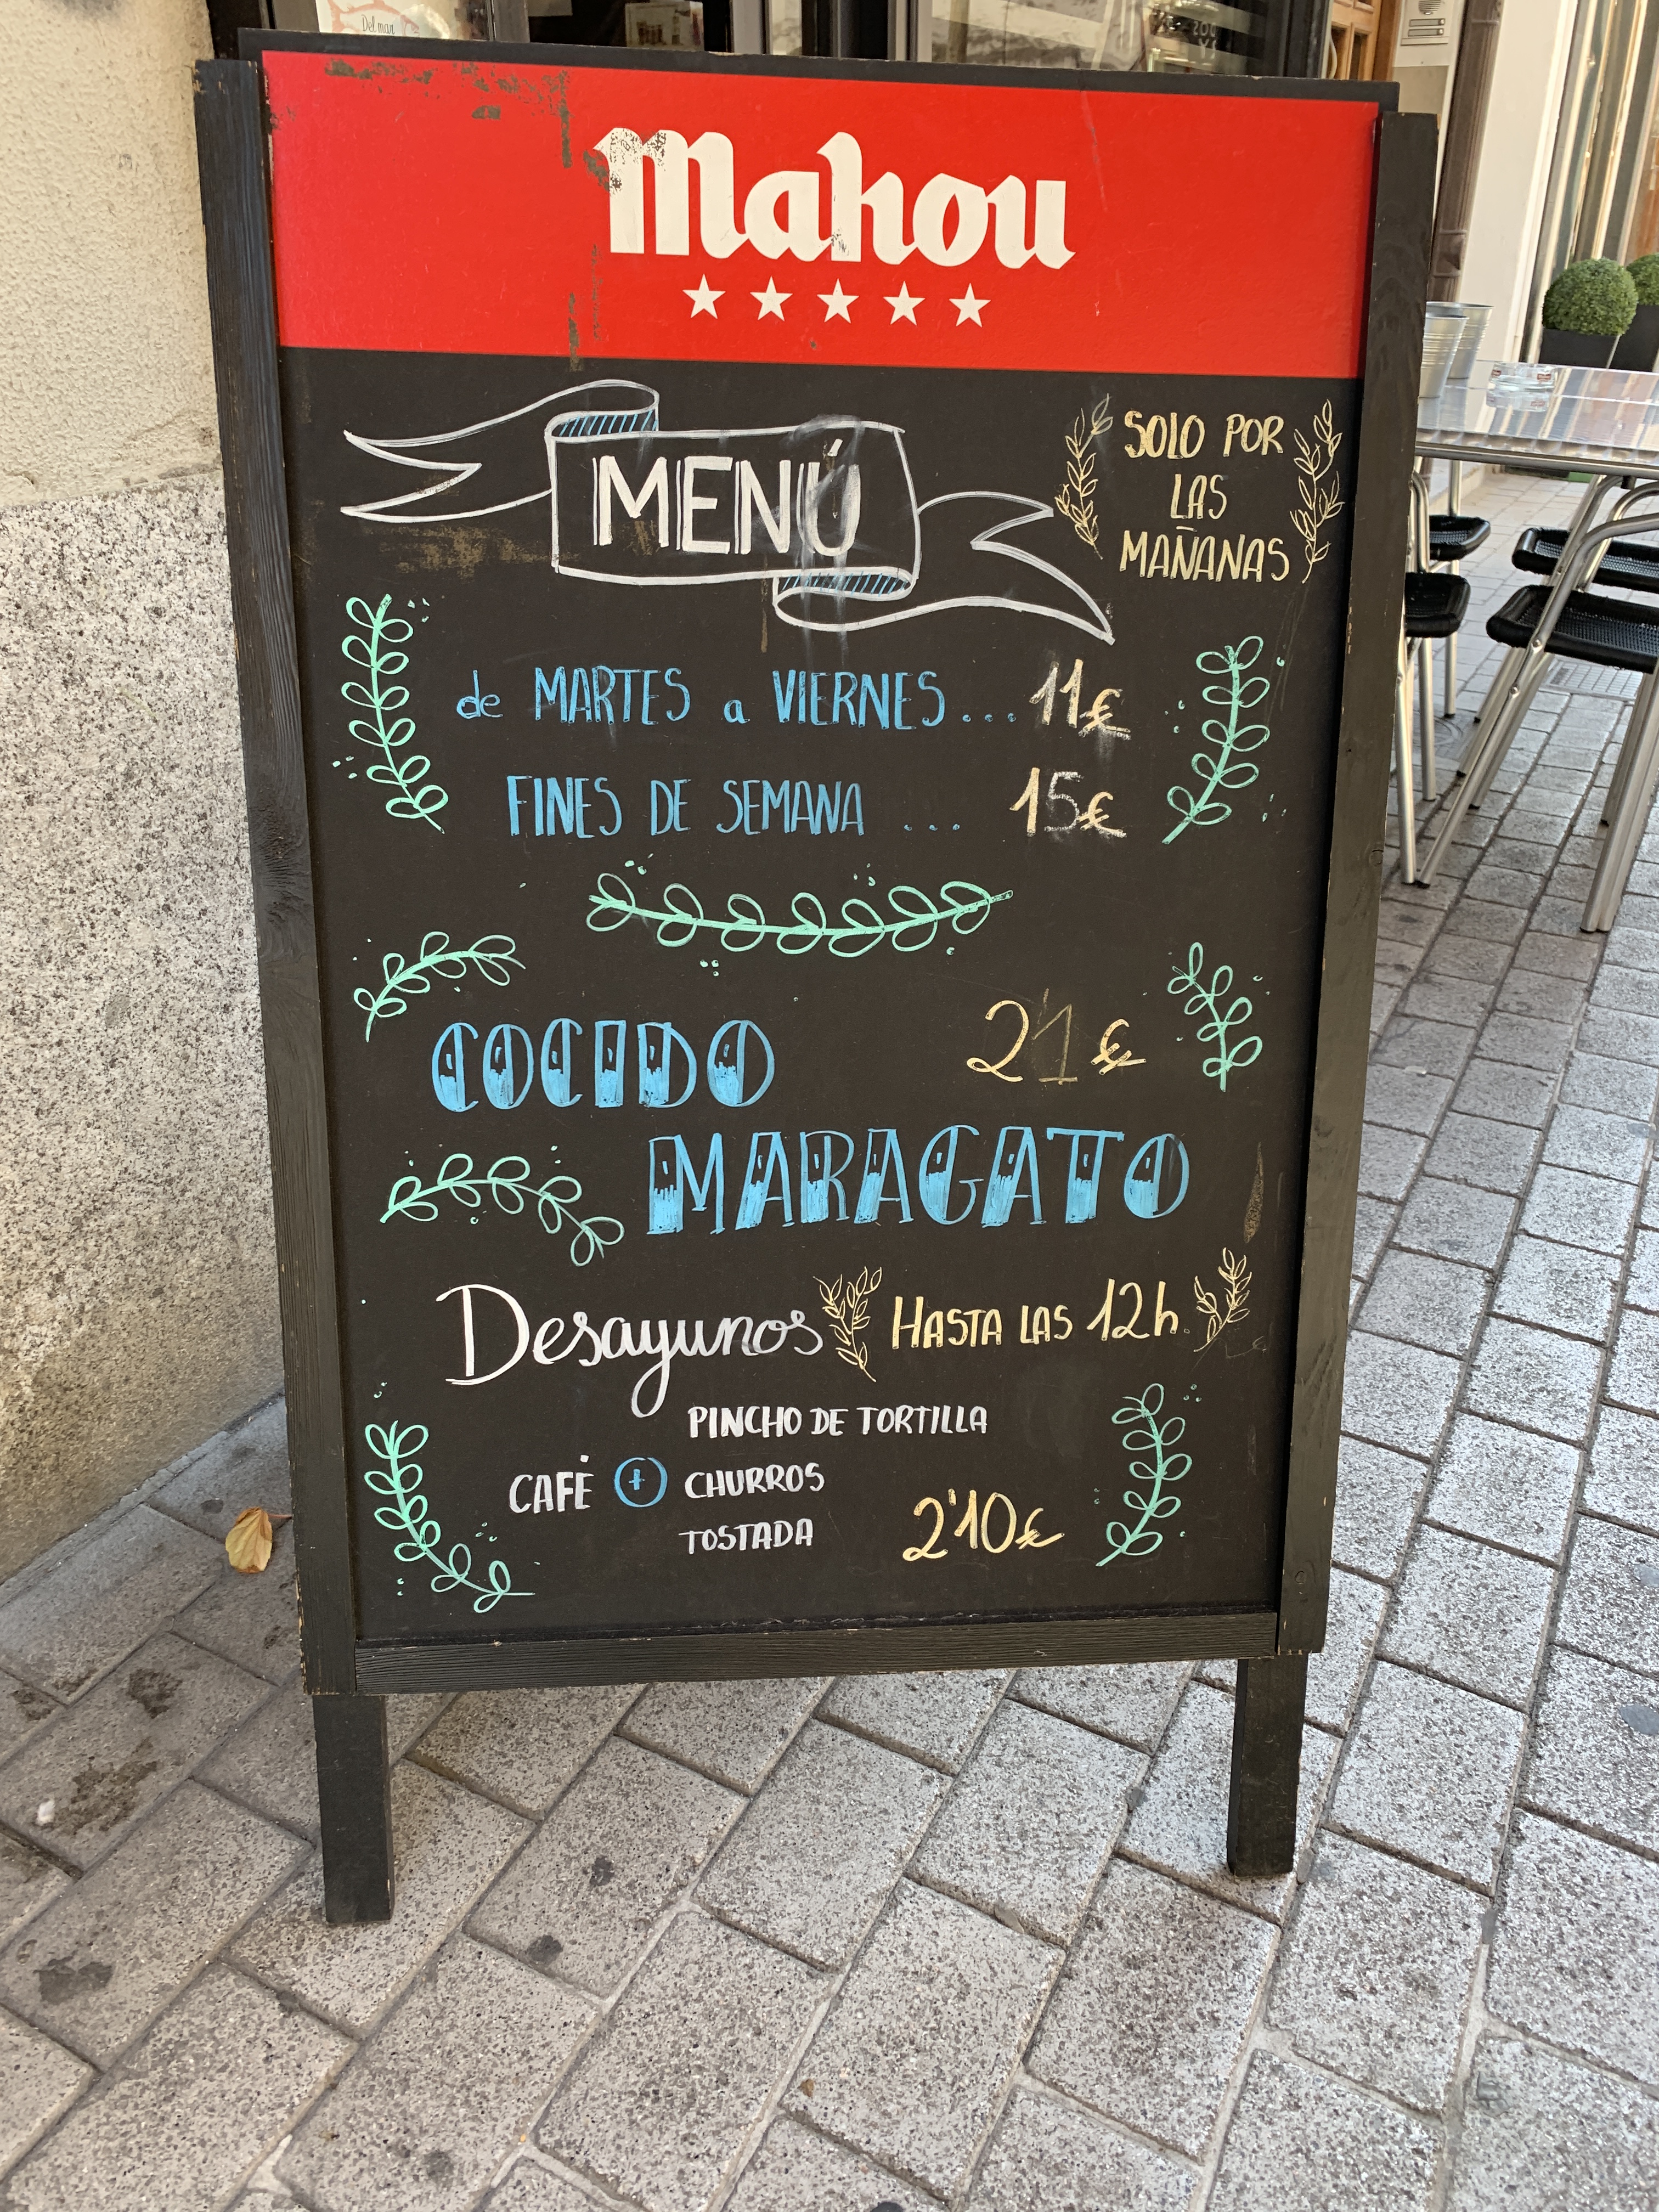 Del mar
Mahou
MENÚ
SOLO POR
LAS
MAÑANAS
de MARTES a VIERNES... 11€
FINES DE SEMANA ... 15€
COCIDO 21€
MARAGATO
Desayunos HASTA LAS 12h.
PINCHO DE TORTILLA
CAFÉ + CHURROS
TOSTADA 2'10€